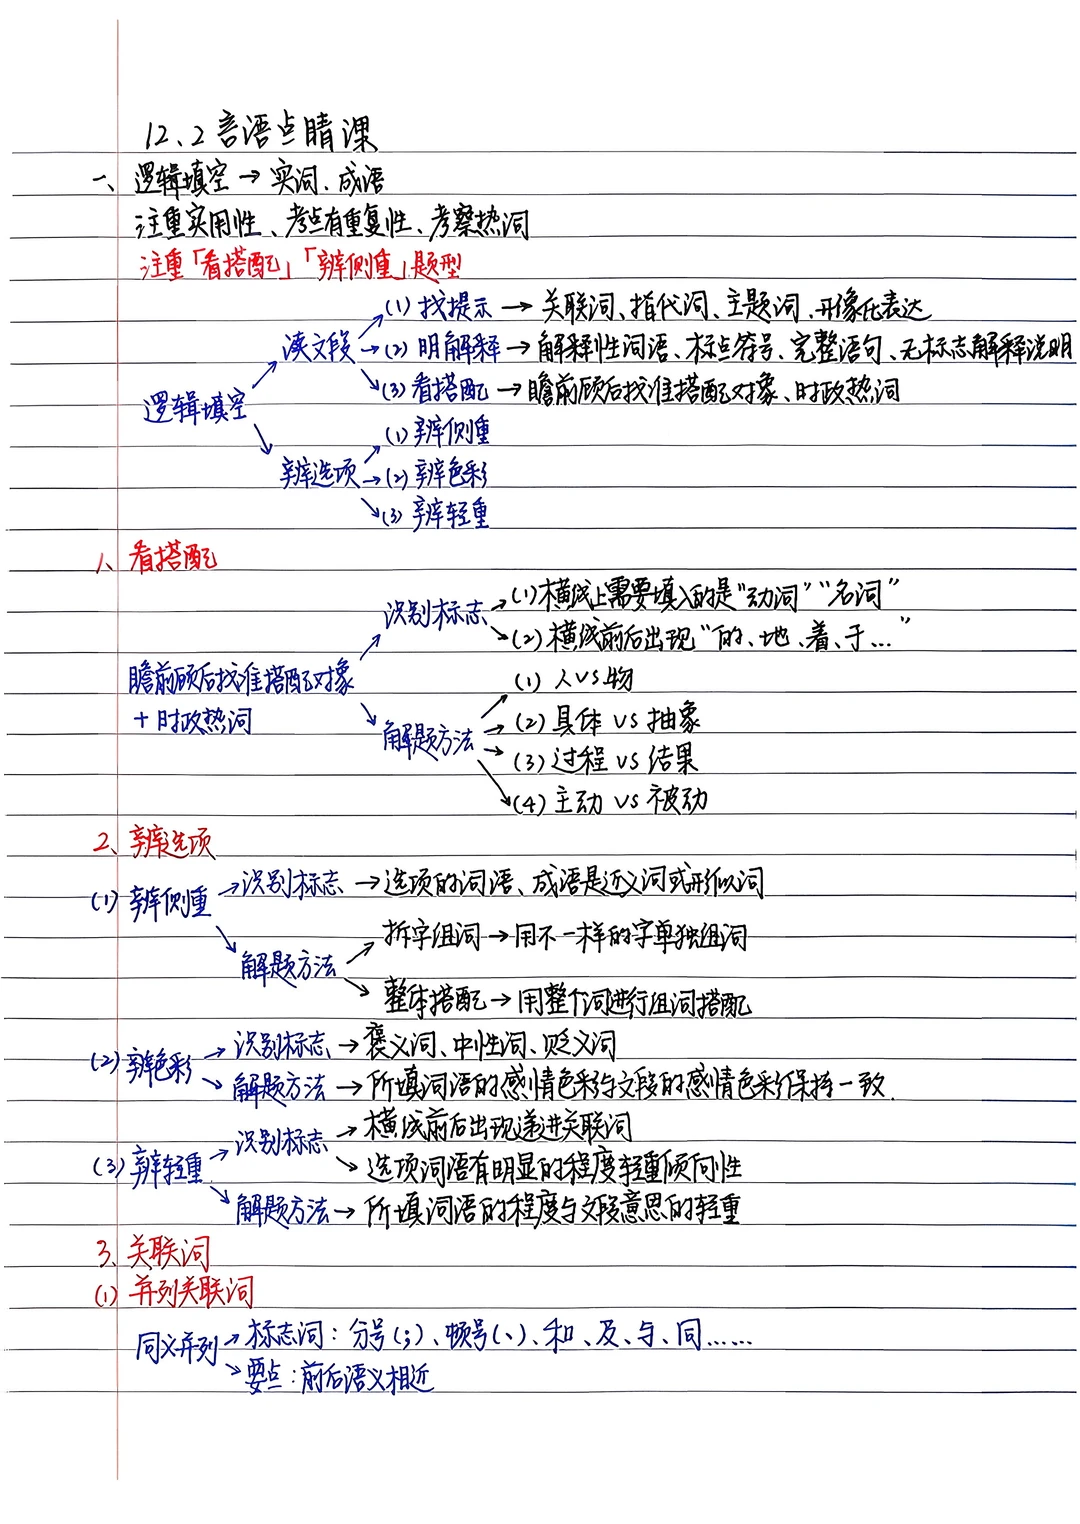 12、2 言语点睛课
一、逻辑填空→实词、成语
注重实用性、考点有重复性、考察热词
注重「看搭配」「辨侧重」题型
(1) 找提示→关联词、指代词、主题词、形像化表达
读文段→(2) 明解释→解释性词语、标点符号、完整语句、无标志解释说明
(3) 看搭配→瞻前顾后找准搭配对象、时政热词
逻辑填空
(1) 辨侧重
辨选项→(2) 辨色彩
(3) 辨轻重
1、看搭配
识别标志→(1)横线上需要填入的是“动词”“名词”
(2)横线前后出现“的、地、着、于...”
瞻前顾后找准搭配对象
+时政热词
(1) 人vs物
解题方法→(2)具体 vs 抽象
(3)过程 vs 结果
(4)主动 vs 被动
2、辨选项
(1) 辨侧重→识别标志→选项的词语、成语是近义词或形似词
解题方法
拆字组词→用不一样的字单独组词
整体搭配→用整个词进行组词搭配
(2)辨色彩→识别标志→褒义词、中性词、贬义词
解题方法→所填词语的感情色彩与文段的感情色彩保持一致.
(3)辨轻重→识别标志→横线前后出现递进关联词
选项词语有明显的程度轻重倾向性
解题方法→所填词语的程度与文段意思的轻重
3、关联词
(1) 并列关联词
同义并列→标志词：分号(；)、顿号(、)、和、及、与、同……
要点：前后语义相近